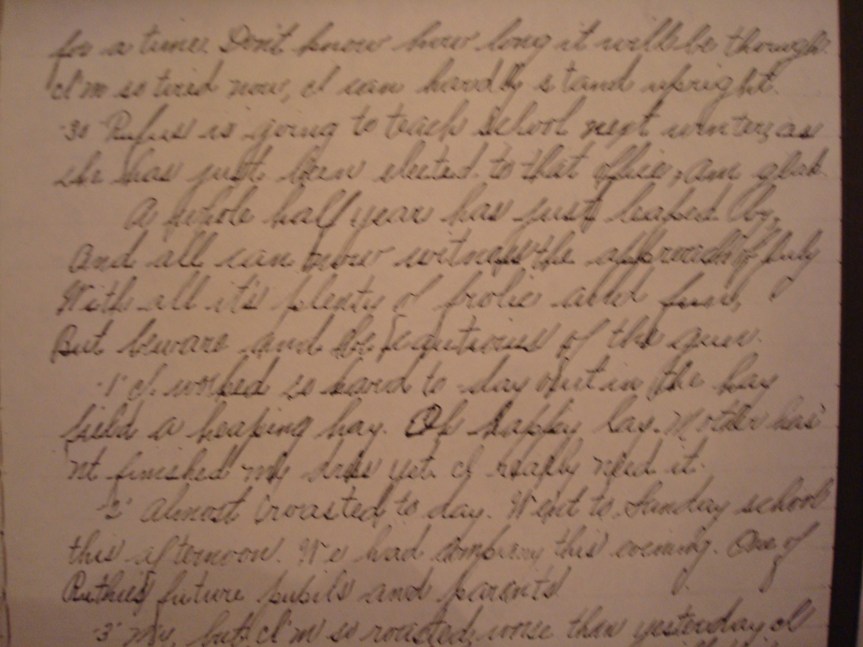 for a time. Don't know how long it will be though.
I'm so tired now, I can hardly stand upright.
30 Rufus is going to teach school next winter, as
she has just been elected to that office, am glad.
A whole half year has just leaped by,
And all can now witness the approach of July
With all it's plenty of frolic and fun,
But beware and be cautious of the gun.
1 I worked so hard to-day out in the hay
field a heaping hay. Oh happy  Mother has
'nt finished my dress yet. I really need it.
2 Almost roasted to day. Went to Sunday school
this afternoon. We had company this evening. One of
Ruthie's future pupils and parents
3 My, but I'm so roasted, worse than yesterday I